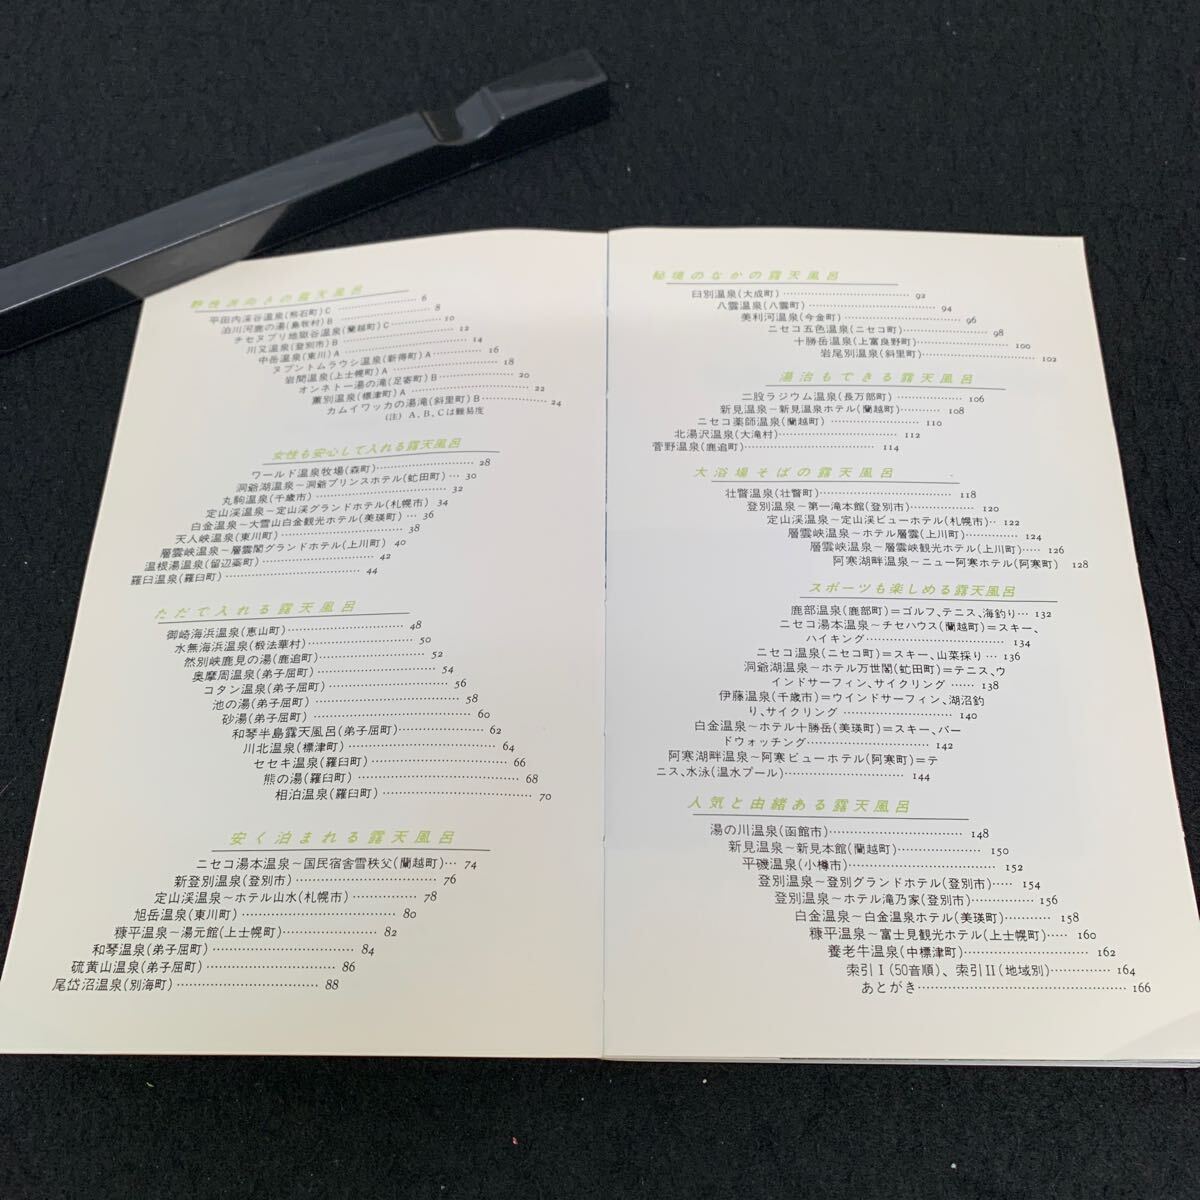 野性派向きの露天風呂
平田内渓谷温泉(熊石町)C 6
泊川河鹿の湯(島牧村)B 8
チセヌプリ地獄谷温泉(蘭越町)C 10
川又温泉(登別市)B 12
中岳温泉(東川)A 14
ヌプントムラウシ温泉(新得町)A 16
岩間温泉(上士幌町)A 18
オンネトー湯の滝(足寄町)B 20
薫別温泉(標津町)A 22
カムイワッカの湯滝(斜里町)B 24
(注) A、B、Cは難易度
女性も安心して入れる露天風呂
ワールド温泉牧場(森町) 28
洞爺湖温泉～洞爺プリンスホテル(虻田町) 30
丸駒温泉(千歳市) 32
定山渓温泉～定山渓グランドホテル(札幌市) 34
白金温泉～大雪山白金観光ホテル(美瑛町) 36
天人峡温泉(東川町) 38
層雲峡温泉～層雲閣グランドホテル(上川町) 40
温根湯温泉(留辺蘂町) 42
羅臼温泉(羅臼町) 44
ただで入れる露天風呂
御崎海浜温泉(恵山町) 48
水無海浜温泉(椴法華村) 50
然別峡鹿見の湯(鹿追町) 52
奥摩周温泉(弟子屈町) 54
コタン温泉(弟子屈町) 56
池の湯(弟子屈町) 58
砂湯(弟子屈町) 60
和琴半島露天風呂(弟子屈町) 62
川北温泉(標津町) 64
セセキ温泉(羅臼町) 66
熊の湯(羅臼町) 68
相泊温泉(羅臼町) 70
安く泊まれる露天風呂
ニセコ湯本温泉～国民宿舎雪秩父(蘭越町) 74
新登別温泉(登別市) 76
定山渓温泉～ホテル山水(札幌市) 78
旭岳温泉(東川町) 80
糠平温泉～湯元館(上士幌町) 82
和琴温泉(弟子屈町) 84
硫黄山温泉(弟子屈町) 86
尾岱沼温泉(別海町) 88
秘境のなかの露天風呂
臼別温泉(大成町) 92
八雲温泉(八雲町) 94
美利河温泉(今金町) 96
ニセコ五色温泉(ニセコ町) 98
十勝岳温泉(上富良野町) 100
岩尾別温泉(斜里町) 102
湯治もできる露天風呂
二股ラジウム温泉(長万部町) 106
新見温泉～新見温泉ホテル(蘭越町) 108
ニセコ薬師温泉(蘭越町) 110
北湯沢温泉(大滝村) 112
菅野温泉(鹿追町) 114
大浴場そばの露天風呂
壮瞥温泉(壮瞥町) 118
登別温泉～第一滝本館(登別市) 120
定山渓温泉～定山渓ビューホテル(札幌市) 122
層雲峡温泉～ホテル層雲(上川町) 124
層雲峡温泉～層雲峡観光ホテル(上川町) 126
阿寒湖畔温泉～ニュー阿寒ホテル(阿寒町) 128
スポーツも楽しめる露天風呂
鹿部温泉(鹿部町)＝ゴルフ、テニス、海釣り 132
ニセコ湯本温泉～チセハウス(蘭越町)＝スキー、
ハイキング 134
ニセコ温泉(ニセコ町)＝スキー、山菜採り 136
洞爺湖温泉～ホテル万世閣(虻田町)＝テニス、ウ
インドサーフィン、サイクリング 138
伊藤温泉(千歳市)＝ウインドサーフィン、湖沼釣
り、サイクリング 140
白金温泉～ホテル十勝岳(美瑛町)＝スキー、バー
ドウォッチング 142
阿寒湖畔温泉～阿寒ビューホテル(阿寒町)＝テ
ニス、水泳(温水プール) 144
人気と由緒ある露天風呂
湯の川温泉(函館市) 148
新見温泉～新見本館(蘭越町) 150
平磯温泉(小樽市) 152
登別温泉～登別グランドホテル(登別市) 154
登別温泉～ホテル滝乃家(登別市) 156
白金温泉～白金温泉ホテル(美瑛町) 158
糠平温泉～富士見観光ホテル(上士幌町) 160
養老牛温泉(中標津町) 162
索引Ⅰ(50音順)、索引Ⅱ(地域別) 164
あとがき 166